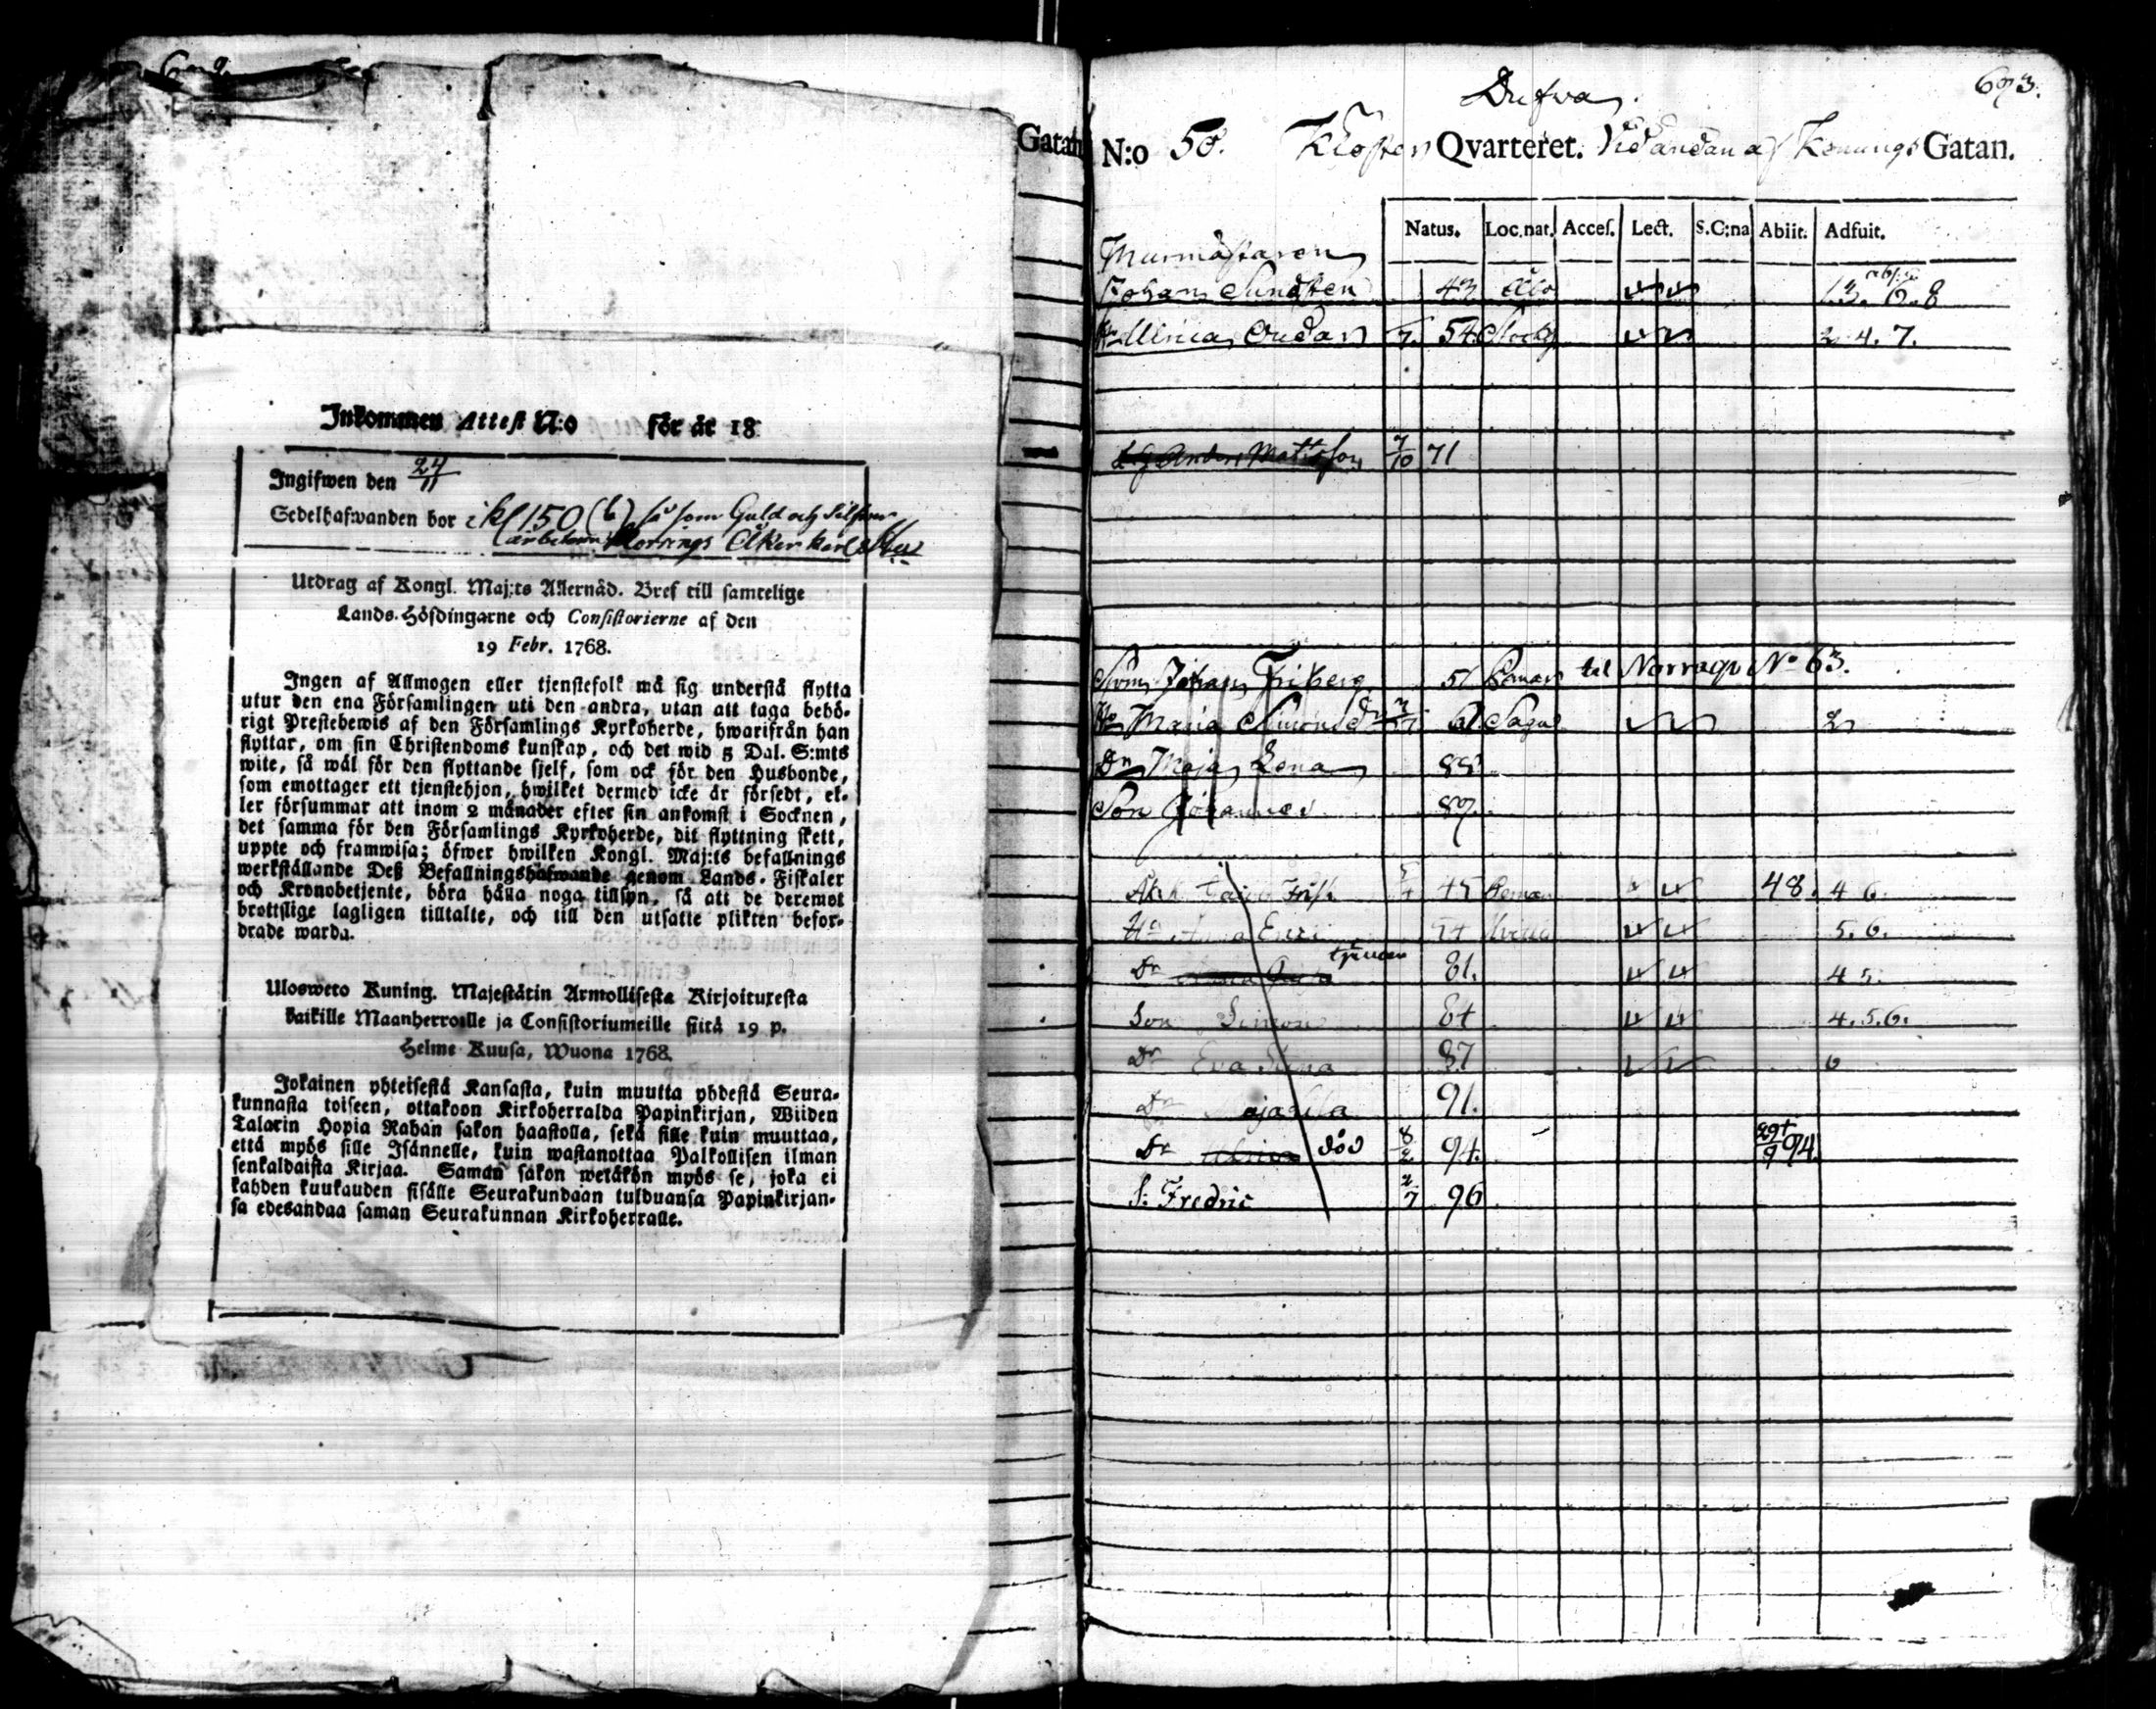 Inkommen Attest N:o för år 18
Ingifwen den 24/11
Sedelhafwanden bor i kl 150 (b) så som Guld och Silfwer
arbetaren Norrings Åkerkarl
Utdrag af Kongl. Maj:ts Allernåd. Bref till samtelige
Lands-Höfdingarne och Consistorierne af den
19 Febr. 1768.
Ingen af Allmogen eller tjenstefolk må sig understå flytta
utur den ena Församlingen uti den andra, utan att taga behö-
rigt Prestebewis af den Församlings Kyrkoherde, hwarifrån han
flyttar, om sin Christendoms kunskap, och det wid 5 Dal. S:mts
wite, så wäl för den flyttande sjelf, som ock för den Husbonde,
som emottager ett tjenstehjon, hwilket dermed icke är försedt, el-
ler försummar att inom 2 månader efter sin ankomst i Socknen,
det samma för den Församlings Kyrkoherde, dit flyttning skett,
uppte och framwisa; öfwer hwilken Kongl. Maj:ts befallnings
werkställande Deß Befallningshafwande genom Lands-Fiskaler
och Kronobetjente, böra hålla noga tillsyn, så att de deremot
brottslige lagligen tilltalte, och till den utsatte plikten befor-
drade warda.
Ulosweto Kuning. Majestätin Armollisesta Kirjoituxesta
kaikille Maanherroille ja Consistoriumeille siitä 19 p.
Helme Kuusa, Wuona 1768.
Jokainen yhteisestä Kansasta, kuin muutta yhdestä Seura-
kunnasta toiseen, ottakoon Kirkoherralda Papinkirjan, Wiiden
Talarin Hopia Rahan sakon haastolla, sekä sille kuin muuttaa,
että myös sille Isännelle, kuin wastanottaa Palkollisen ilman
senkaldaista Kirjaa. Saman sakon wetäkön myös se, joka ei
kahden kuukauden sisälle Seurakundaan tulduansa Papinkirjan-
sa edesandaa saman Seurakunnan Kirkoherralle.
Gatan
673.
Dufva
N:o 50. Kloster Qvarteret. Vidandan af Konungs Gatan.
Natus. Loc.nat. Acces. Lect. S.C:na Abiit. Adfuit.
Murmästaren
Johan Sundsten 43 Åbo 13. 6. 8
Hu Ulrica 7. 54. 2. 4. 7.
Anders Matsson 7/10 71
Johan Friberg 51 Pemar til Norraqv No 63.
Hu Maria Simonsdr 61 Sagu 2
Dr Maja Lena 88
Son Johannes 89.
Frisk 45 Pemar 48. 4 6.
Hu Anna 54 5. 6.
Dr 81. 4 5.
Son Simon 84 4. 5. 6.
Dr Eva Stina 87 6
Dr Maja 91.
Dr död 8/2 94. 29+/9 94.
S: Fredric 2/7 96